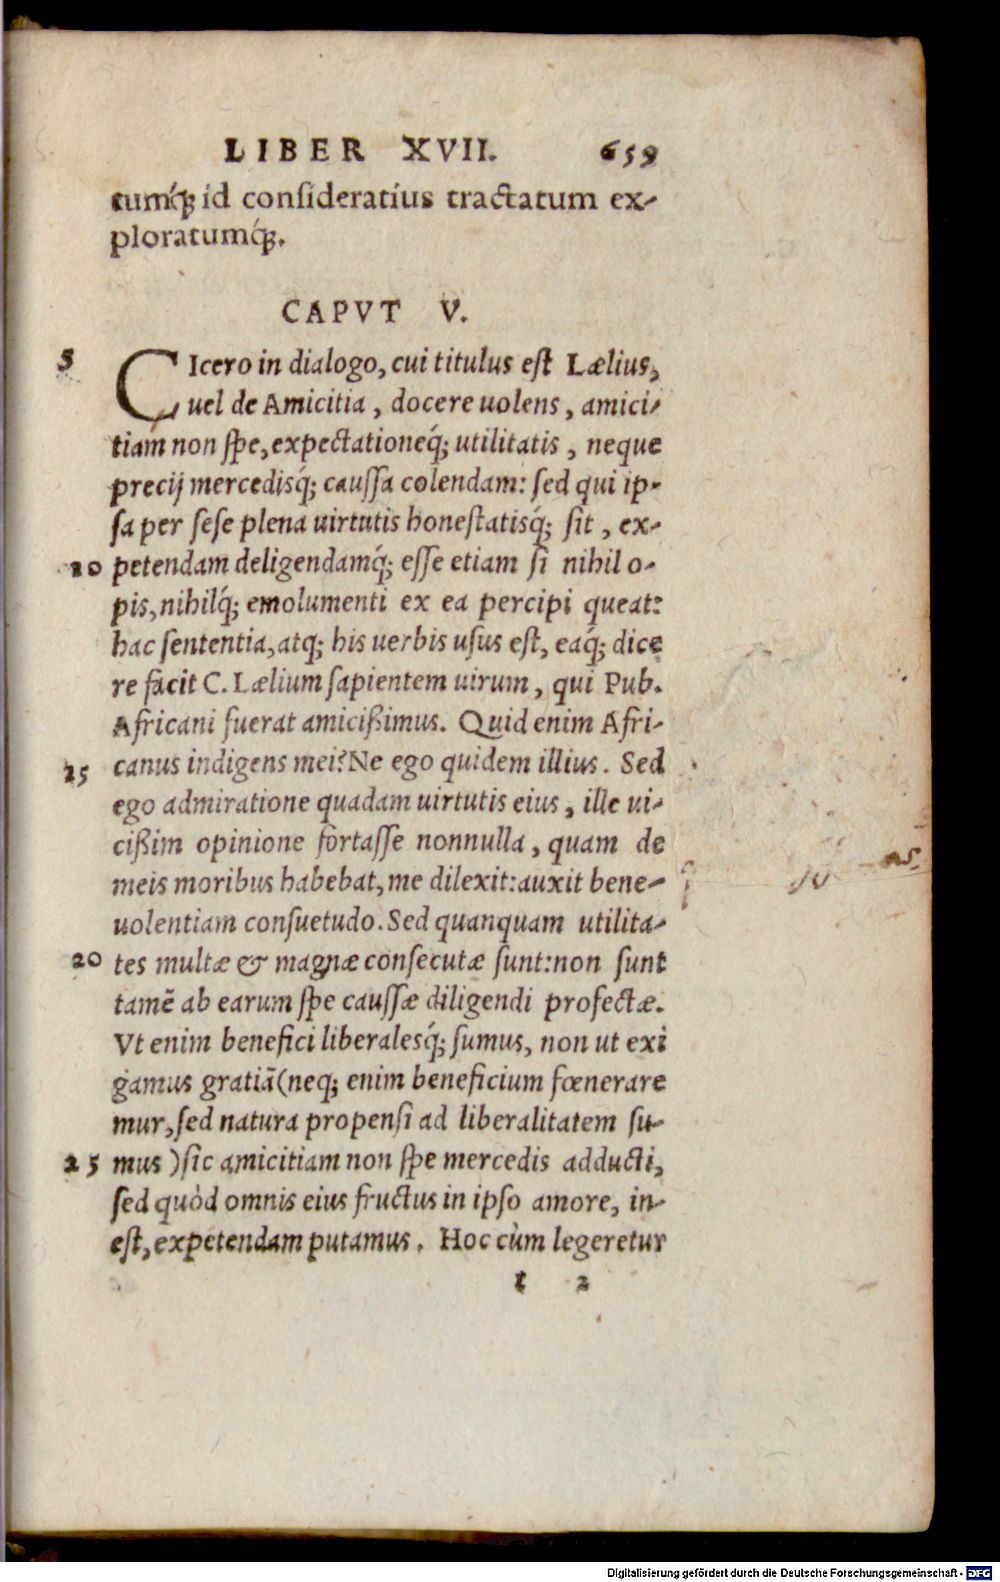 LIBER XVII. 659
tumq́; id consideratius tractatum ex-
ploratumq́;.
CAPVT V.
5 CIcero in dialogo, cui titulus est Lælius,
uel de Amicitia, docere uolens, amici-
tiam non spe, expectationeq́; utilitatis, neque
precij mercedisq́; caussa colendam: sed qui ip-
sa per sese plena uirtutis honestatisq́; sit, ex-
10 petendam deligendamq́; esse etiam si nihil o-
pis, nihilq́; emolumenti ex ea percipi queat:
hac sententia, atq; his uerbis usus est, eaq́; dice
re facit C. Lælium sapientem uirum, qui Pub.
Africani fuerat amicißimus. Quid enim Afri-
15 canus indigens mei? Ne ego quidem illius. Sed
ego admiratione quadam uirtutis eius, ille ui-
cißim opinione fortasse nonnulla, quam de
meis moribus habebat, me dilexit: auxit bene-
uolentiam consuetudo. Sed quanquam utilita-
20 tes multæ & magnæ consecutæ sunt: non sunt
tamē ab earum spe caussæ diligendi profectæ.
Vt enim benefici liberalesq́; sumus, non ut exi
gamus gratiā (neq; enim beneficium fœnerare
mur, sed natura propensi ad liberalitatem su-
25 mus) sic amicitiam non spe mercedis adducti,
sed quòd omnis eius fructus in ipso amore, in-
est, expetendam putamus. Hoc cùm legeretur
t 2
Digitalisierung gefördert durch die Deutsche Forschungsgemeinschaft - DFG